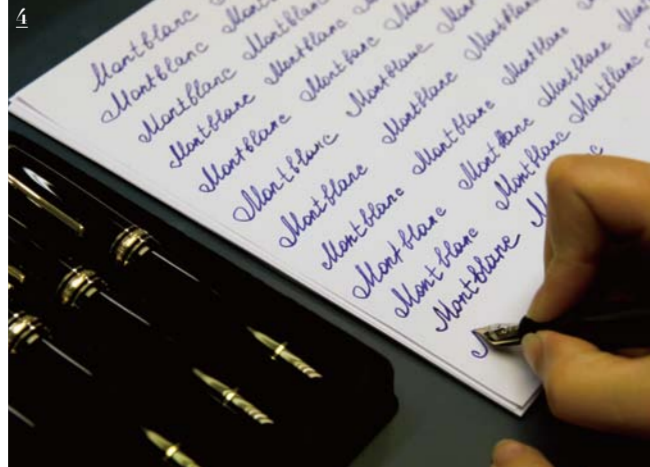 4
Montblanc
Montblanc Montblanc
Montblanc Montblanc
Montblanc Montblanc Montblanc
Montblanc Montblanc Montblanc
Montblanc Montblanc Montblanc
Montblanc Montblanc Montblanc
Montblanc Montblanc Montblanc
Montblanc Montblanc Montblanc
Montblanc Montblanc
Montblanc